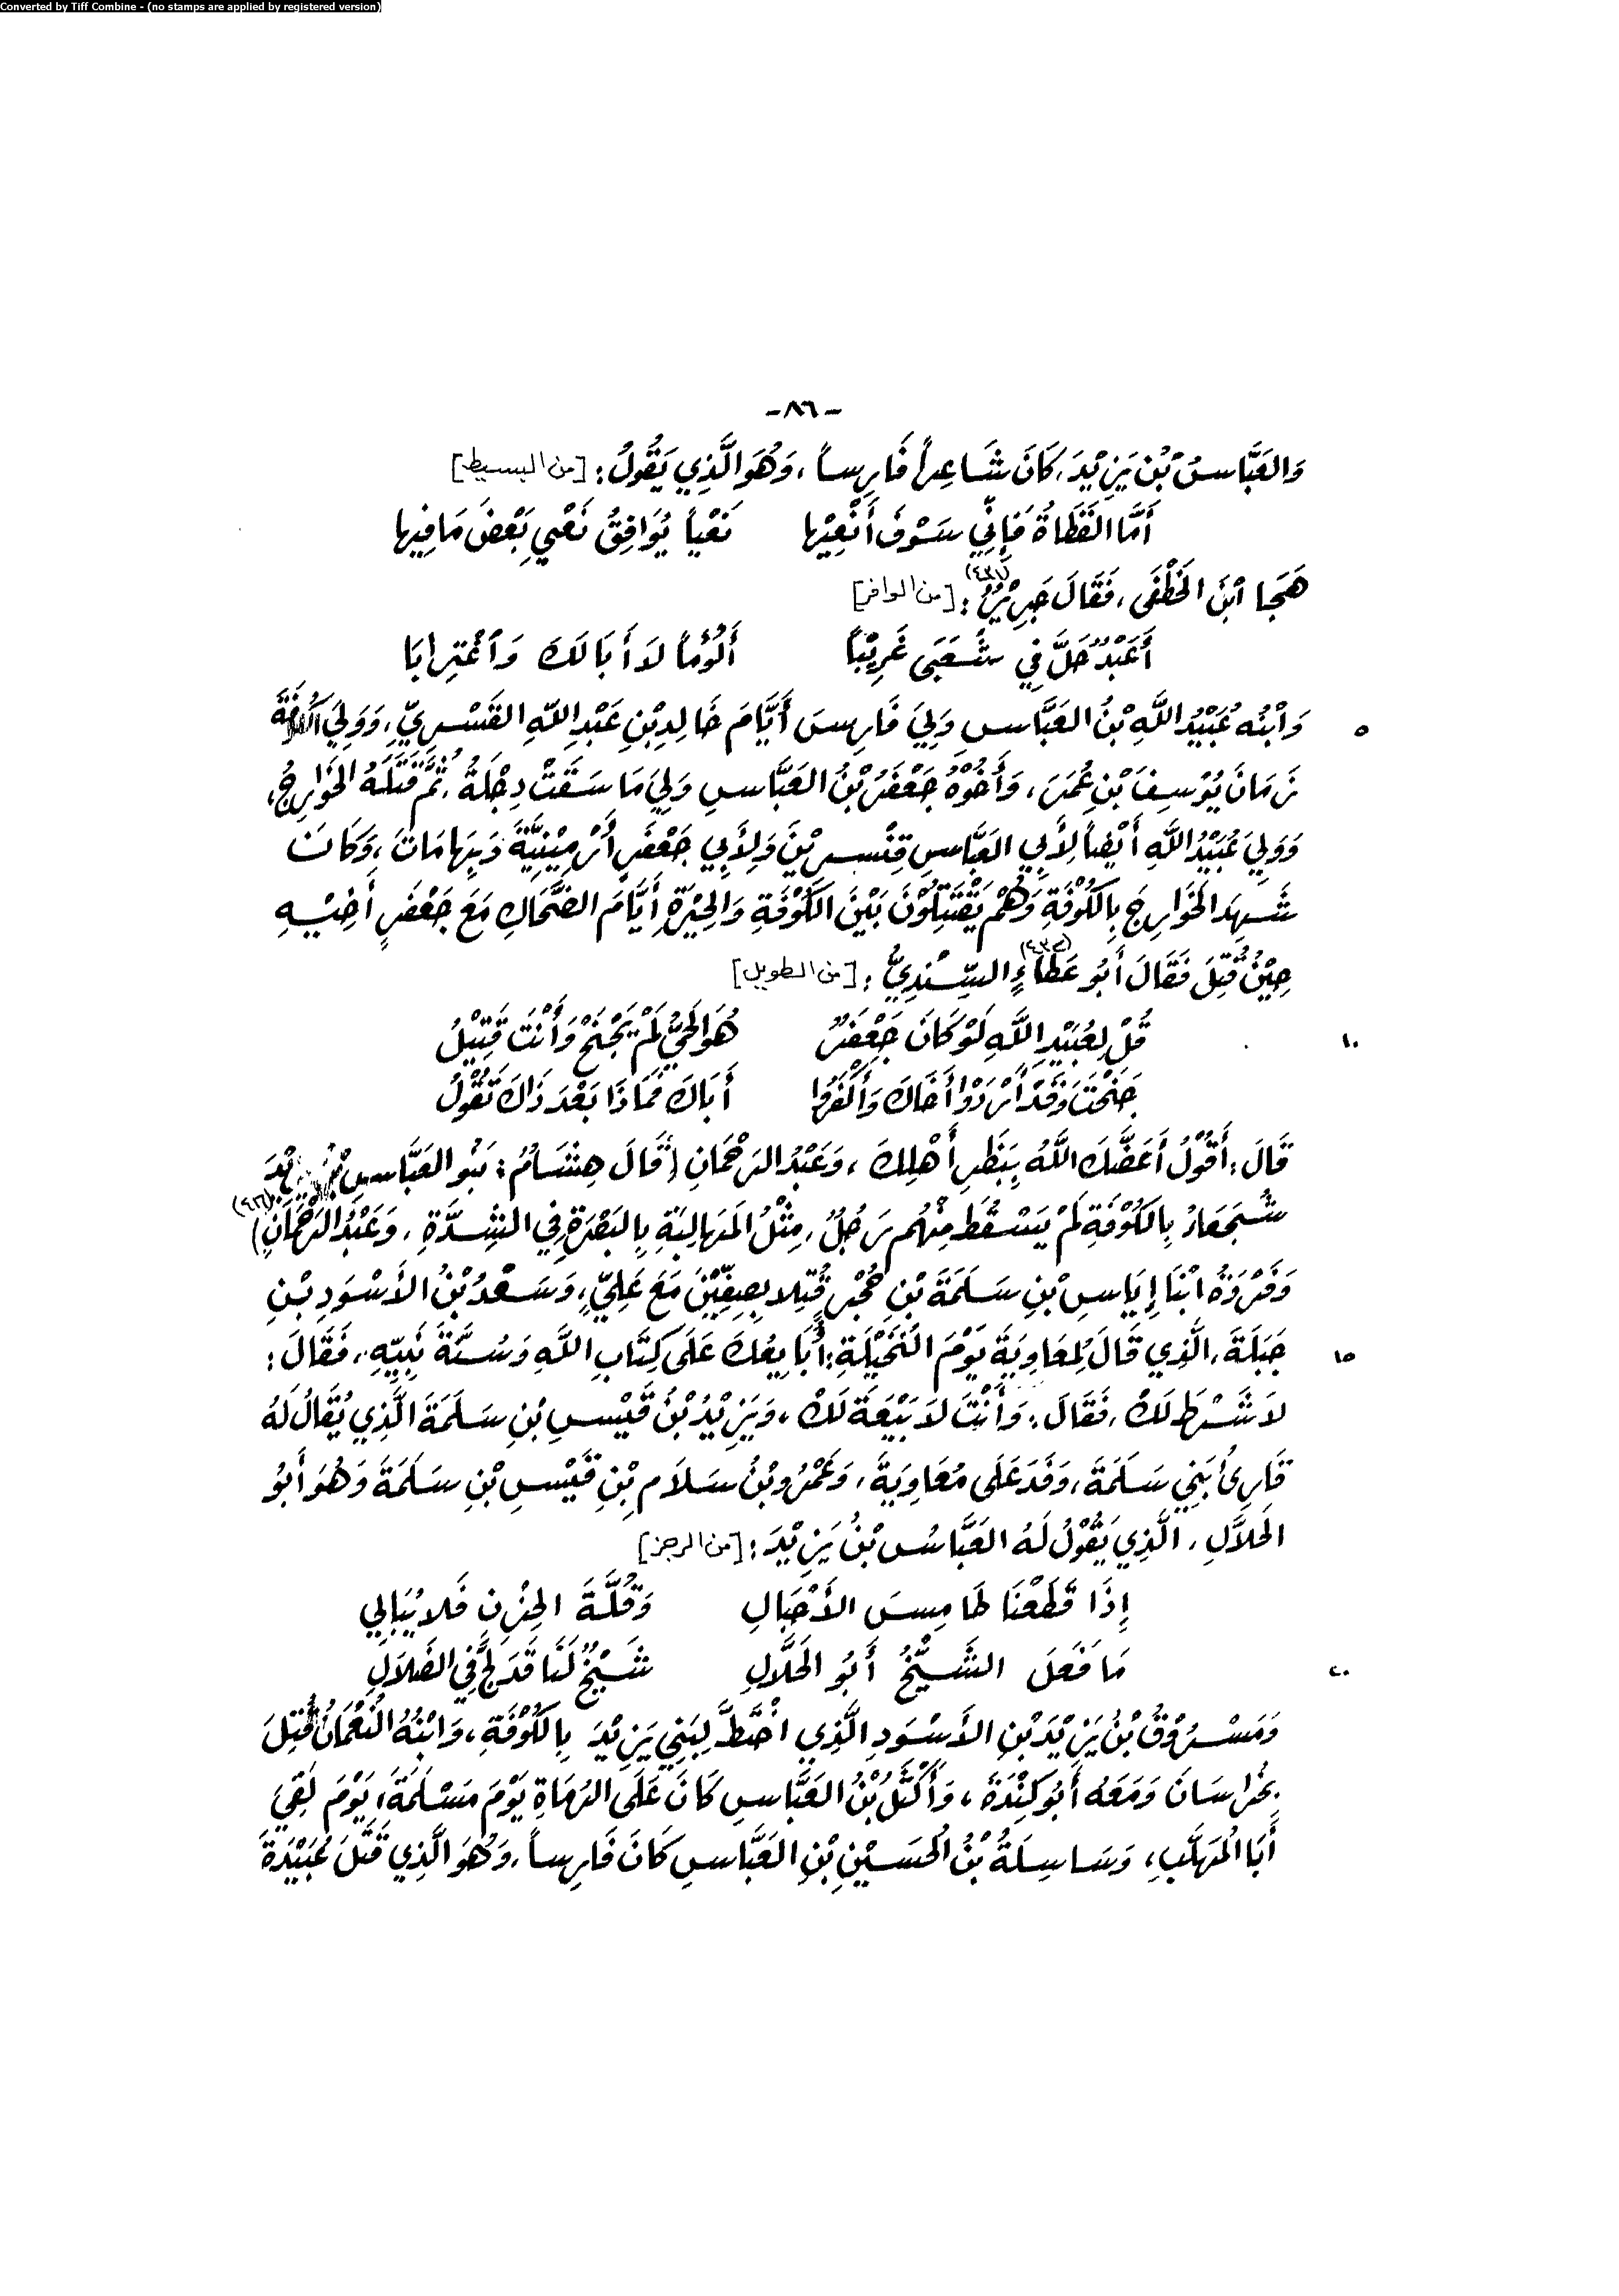 Converted by Tiff Combine - (no stamps are applied by registered version)
-٨٦-
وَالعَبَّاسُ بْنُ يَزِيْدَ، كَانَ شَاعِراً فَارِساً، وَهُوَ الَّذِي يَقُولُ: [من البسيط]
أَمَّا القَطَاةُ فَإِنِّي سَوْفَ أَنْعِيْها نَعْياً يُوَافِقُ نَعْيِي بَعْضَ مَا فِيها
هَجَا ابْنَ الخَطَفَى، فَقَالَ جَرِيْرٌ (٤٣١): [من الوافر]
أَعَبْدٌ حَلَّ فِي شُعَبَى غَرِيْباً أَلُؤْماً لاَ أَبَا لَكَ وَاغْتِرابَا
وَابْنُهُ عُبَيْدُ اللَّهِ بْنُ العَبَّاسِ وَلِيَ فَارِسَ أَيَّامَ خَالِدِ بْنِ عَبْدِ اللَّهِ القَسْرِيِّ، وَوَلِيَ الكُوفَةَ
٥
زَمَانَ يُوْسِفَ بْنِ عُمَرَ، وَأَخُوْهُ جَعْفَرُ بْنُ العَبَّاسِ وَلِيَ مَا سَقَتْ دِجْلَةُ، ثُمَّ قَتَلَهُ الخَوَارِجُ،
وَوَلِيَ عُبَيْدُ اللَّهِ أَيْضاً لِأَبِي العَبَّاسِ قِنَّسرِيْنَ وَلِأَبِي جَعْفَرٍ أَرْمِيْنِيَّةَ وَبِهَا مَاتَ، وَكَانَ
شَهِدَ الخَوَارِجَ بِالكُوْفَةِ وَهُمْ يَقْتَتِلُوْنَ بَيْنَ الكُوْفَةِ وَالحِيْرَةِ أَيَّامَ الضَّحَّاكِ مَعَ جَعْفَرٍ أَخِيْهِ
حِيْنَ قُتِلَ فَقَالَ أَبُو عَطَاءٍ (٤٣٢) السِّنْدِيُّ: [من الطويل]
قُلْ لِعُبَيْدِ اللَّهِ لَوْ كَانَ جَعْفَرٌ هُوَ الحَيُّ لَمْ يَجْنَحْ وَأَنْتَ قَتِيْلُ
١٠
جَنَحْتَ وَقَدْ أَرْدَوْا أَخَاكَ وَأَكْفَرُوا أَبَاكَ فَمَاذَا بَعْدَ ذَاكَ تَقُوْلُ
قَالَ: أَقُوْلُ أَعَضَّكَ اللَّهُ بِبَظْرِ أَهْلِكَ، وَعَبْدُ الرَحْمَانِ (قَالَ هِشَامٌ: بَنُو العَبَّاسِ بْنِ يَزِيْدَ
شُجَعَاءُ بِالكُوْفَةِ لَمْ يَسْقُطْ مِنْهُم رَجُلٌ، مِثْلُ المَهَالِبَةِ بِالبَصْرَةِ فِي الشِدَّةِ، وَعَبْدُ الرَحْمَانِ)
وَفَرْوَةُ ابْنَا إِيَاسِ بْنِ سَلَمَةَ بْنِ حُجْرٍ قُتِلا بِصِفِّيْنَ مَعَ عَلِيٍّ، وَسَعْدُ بْنُ الأَسْوَدِ بْنِ
جَبَلَةَ، الَّذِي قَالَ لِمُعَاوِيَةَ يَوْمَ النُّخَيْلَةِ: أُبَايِعُكَ عَلَى كِتَابِ اللَّهِ وَسُنَّةِ نَبِيِّهِ، فَقَالَ:
١٥
لاَ شَرْطَ لَكَ، فَقَالَ: وَأَنْتَ لاَ بَيْعَةَ لَكَ، وَيَزِيْدُ بْنُ قَيْسِ بْنِ سَلَمَةَ الَّذِي يُقَالُ لَهُ
قَارِئُ بَنِي سَلَمَةَ، وَفَدَ عَلَى مُعَاوِيَةَ، وَعَمْرُو بْنُ سَلاَمِ بْنِ قَيْسِ بْنِ سَلَمَةَ وَهُوَ أَبُو
الحَلاَّلِ، الَّذِي يَقُوْلُ لَهُ العَبَّاسُ بْنُ يَزِيْدَ: [من الرجز]
إِذَا قَطَعْنَا طَامِسَ الأَجْبَالِ وَقُلَّةَ الحِزْنِ فَلا يُبَالِي
مَا فَعَلَ الشَيْخُ أَبُو الحَلاَّلِ شَيْخٌ لَنَا قَدْ لَجَّ فِي الضَلاَلِ
٢٠
وَمَسْرُوْقُ بْنُ يَزِيْدَ بْنِ الأَسْوَدِ الَّذِي اخْتَطَّ لِبَنِي يَزِيْدَ بِالكُوْفَةِ، وَابْنُهُ النُعْمَانُ قُتِلَ
بِخُرَاسَانَ وَمَعَهُ أَبُو كِنْدَةَ، وَأَكْتَلُ بْنُ العَبَّاسِ كَانَ عَلَى الرُمَاةِ يَوْمَ مَسْلَمَةَ، يَوْمَ لَقِيَ
أَبَا المُهَلَّبِ، وَسَاسِلَةُ بْنُ الحُسَيْنِ بْنِ العَبَّاسِ كَانَ فَارِساً، وَهُوَ الَّذِي قَتَلَ عُبَيْدَةَ